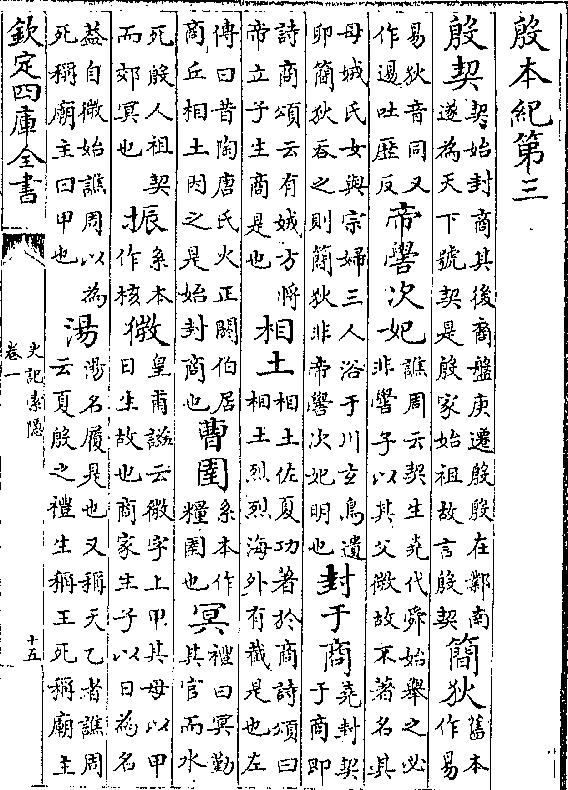 殷本紀第三
殷契
契始封商其後裔盤庚遷殷殷在鄴南
遂為天下號契是殷家始祖故言殷契
簡狄
舊本
作易
易狄音同又
作逷吐歷反
帝嚳次妃
譙周云契生堯代舜始舉之必
非嚳子以其父微故不著名其
母娀氏女與宗婦三人浴于川玄鳥遺
卵簡狄吞之則簡狄非帝嚳次妃明也
封于商
堯封契
于商即
詩商頌云有娀方將
帝立子生商是也
相土
相土佐夏功著於商詩頌曰
相土烈烈海外有截是也左
傳曰昔陶唐氏火正閼伯居
商丘相土因之是始封商也
曹圉
系本作
糧圉也
冥
禮曰冥勤
其官而水
死殷人祖契
而郊冥也
振
系本
作核
微
皇甫謐云微字上甲其母以甲
日生故也商家生子以日為名
葢自微始譙周以為
死稱廟主曰甲也
湯
湯名履是也又稱天乙者譙周
云夏殷之禮生稱王死稱廟主
欽定四庫全書
史記索隱
卷一
十五